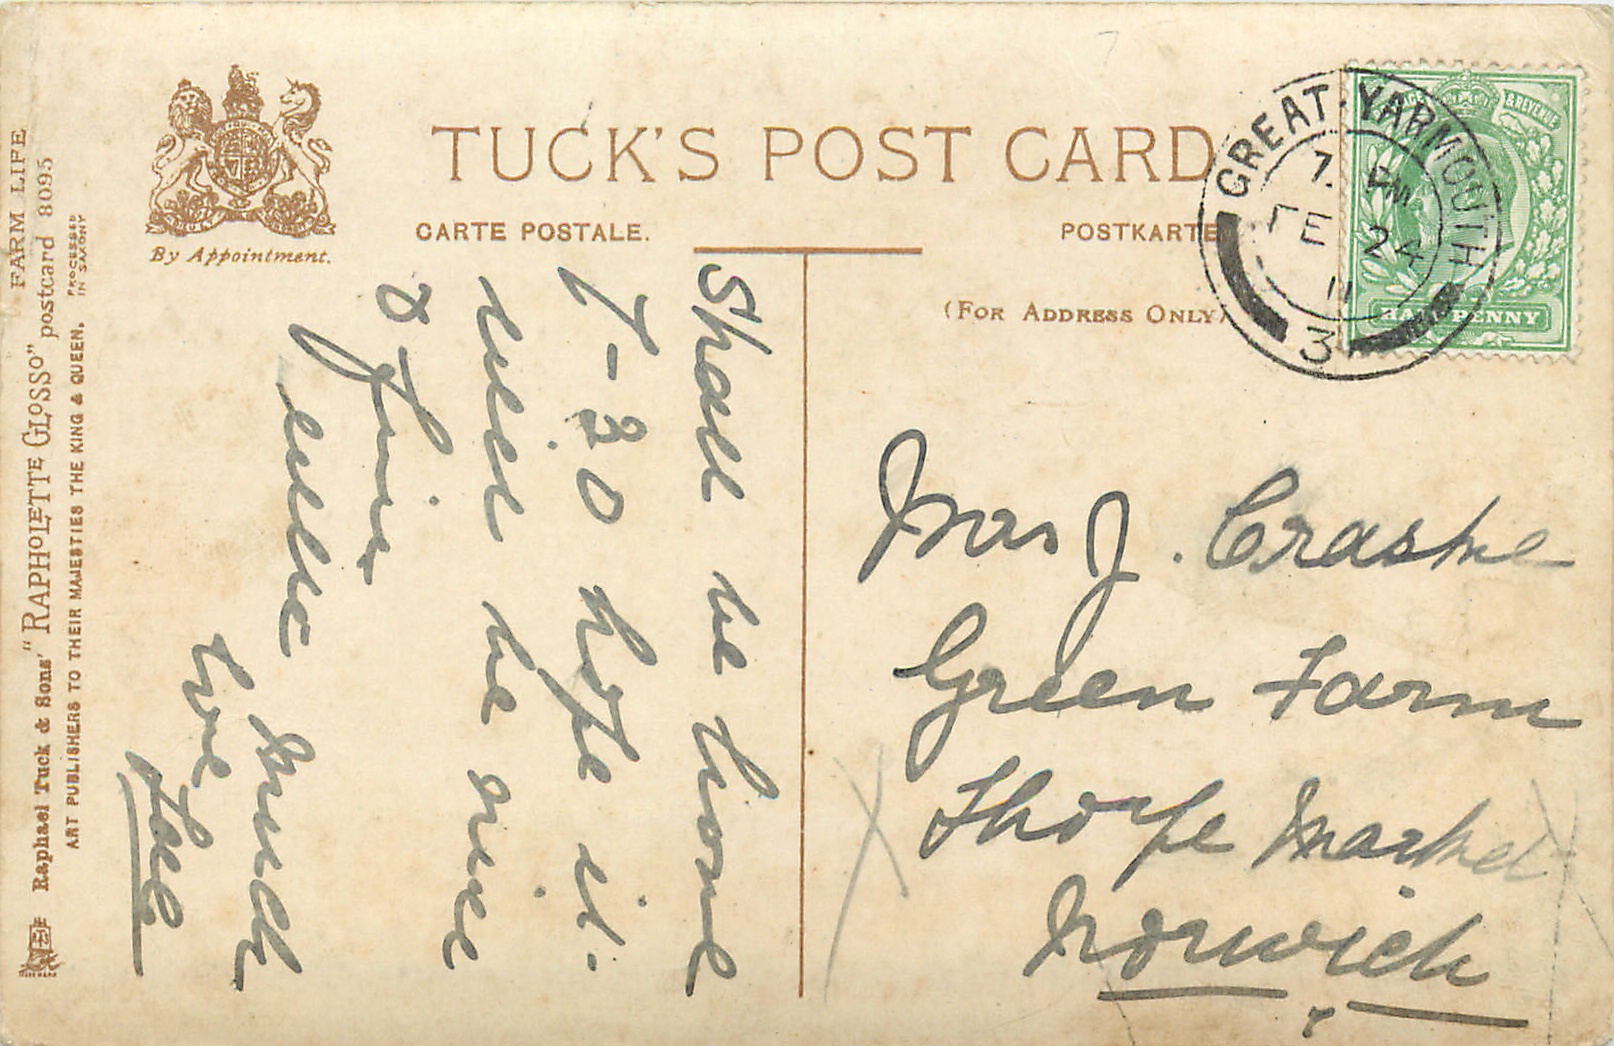 TUCK'S POST CARD
CARTE POSTALE.
POSTKARTE
(FOR ADDRESS ONLY)
By Appointment.
FARM LIFE
Raphael Tuck & Sons' "RAPHOLETTE GLOSSO" postcard 8095
ART PUBLISHERS TO THEIR MAJESTIES THE KING & QUEEN.
PROCESSED
IN SAXONY
GREAT YARMOUTH
7. PM
FE 24
11
3
& REVENUE
HALFPENNY
Shall be home
7-30 hope it
will be nice
& fine
much
love
Mrs J. Craske
Green Farm
Thorpe Market
Norwich